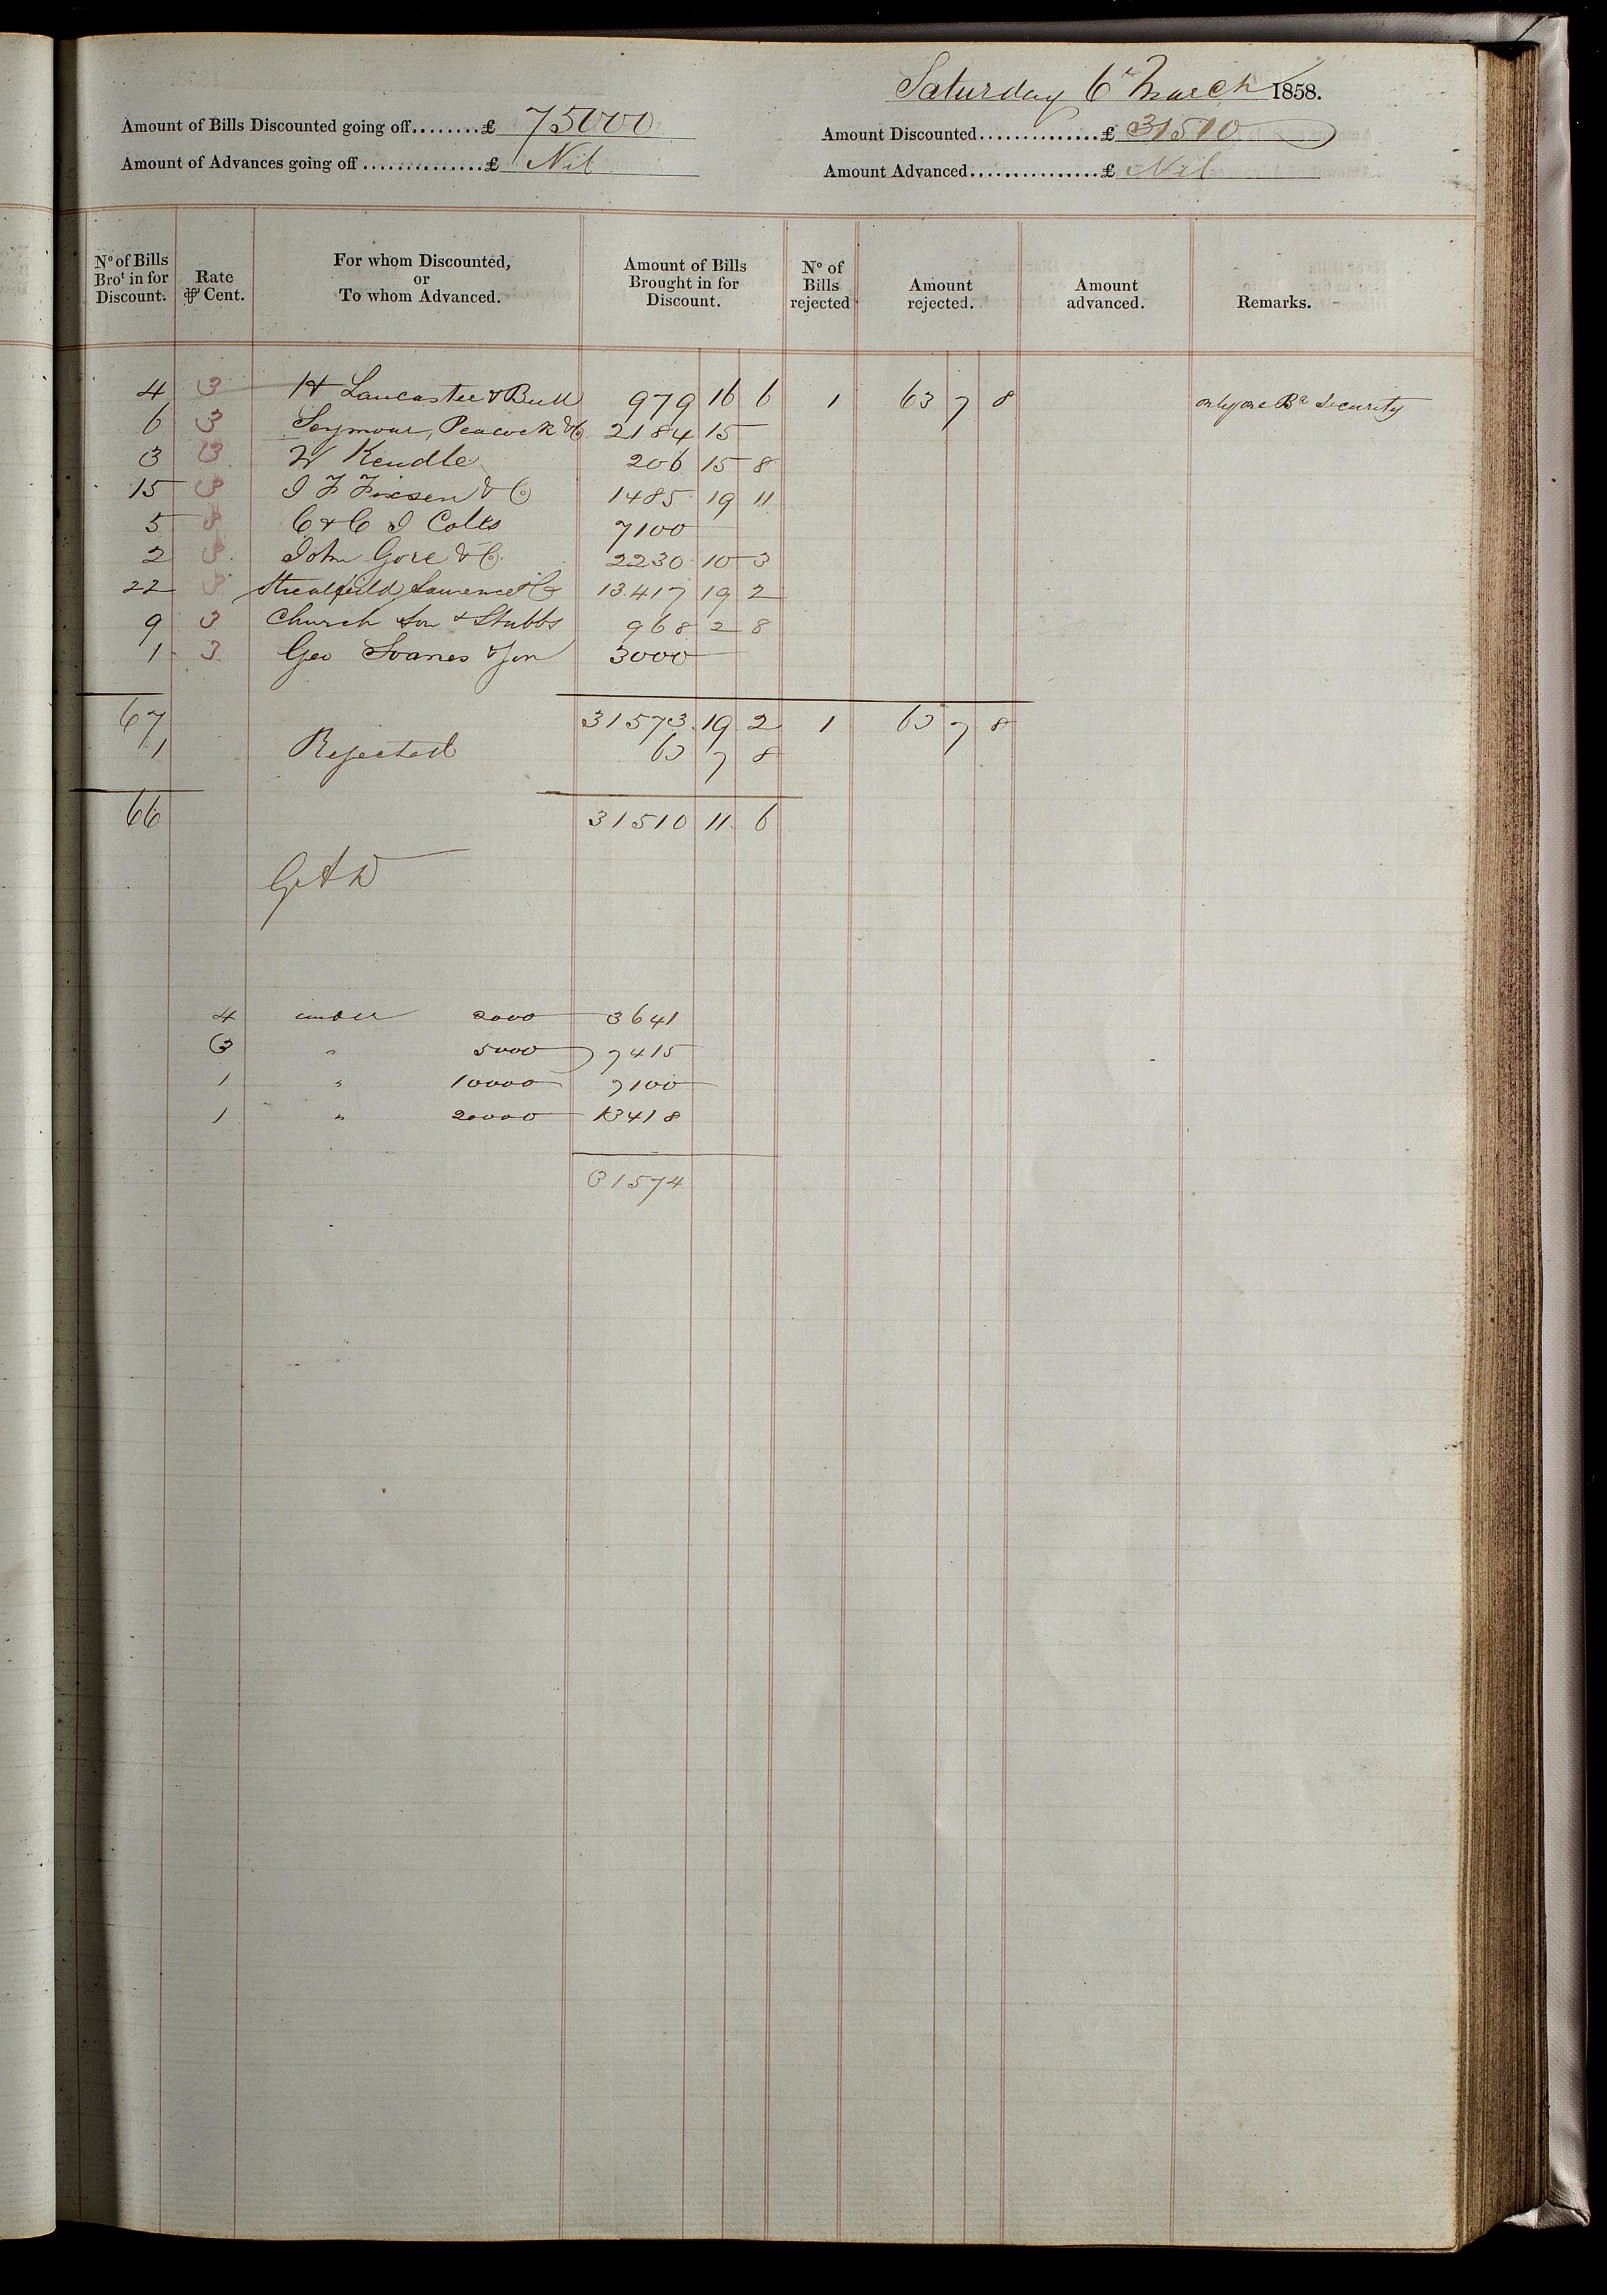 Saturday 6th March 1858.
Amount of Bills Discounted going off........£ 75000 Amount Discounted..............£ 31510
Amount of Advances going off...............£ Nil Amount Advanced................£ Nil
No of Bills Brot in for Discount. Rate ⅌ Cent. For whom Discounted, or To whom Advanced. Amount of Bills Brought in for Discount. No of Bills rejected Amount rejected. Amount advanced. Remarks.
4 3 H Lancaster & Bull 979 16 6 1 63 7 8 only one Security
6 3 Seymour, Peacock & Co 2184 15
3 3 W Kendle 206 15 8
15 3 J F Fixsen & Co 1485 19 11
5 3 C & C J Coles 7100
2 3 John Gore & Co 2230 10 3
22 3 Streatfeild Laurence & Co 13.417 19 2
9 3 Church Son & Stubbs 968 2 8
1 3 Geo Soanes & Son 3000
67 31573 19 2 1 63 7 8
1 Rejected 63 7 8
66 31510 11 6
4 under 2000 3641
3 " 5000 7415
1 " 10000 7100
1 " 20000 13418
31574